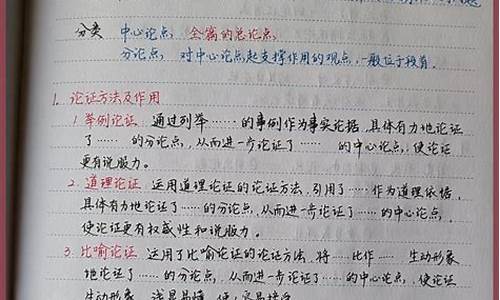 分类 中心论点: 全篇的总论点;
分论点: 对中心论点起支撑作用的观点,一般位于段首.
1. 论证方法及作用
1. 举例论证: 通过列举……的事例作为事实论据,具体有力地论证
了……的分论点,从而进一步论证了……的中心论点,使论证
更有说服力。
2. 道理论证 运用道理论证的论证方法,引用了……作为道理依据,
具体有力地论证了……的分论点,从而进一步论证了……的中心论点,
使论证更有权威性和说服力。
3. 比喻论证: 运用了比喻论证的论证方法,将……比作……生动形象
地论证了……的分论点,从而进一步论证了……的中心论点,使论证
生动形象